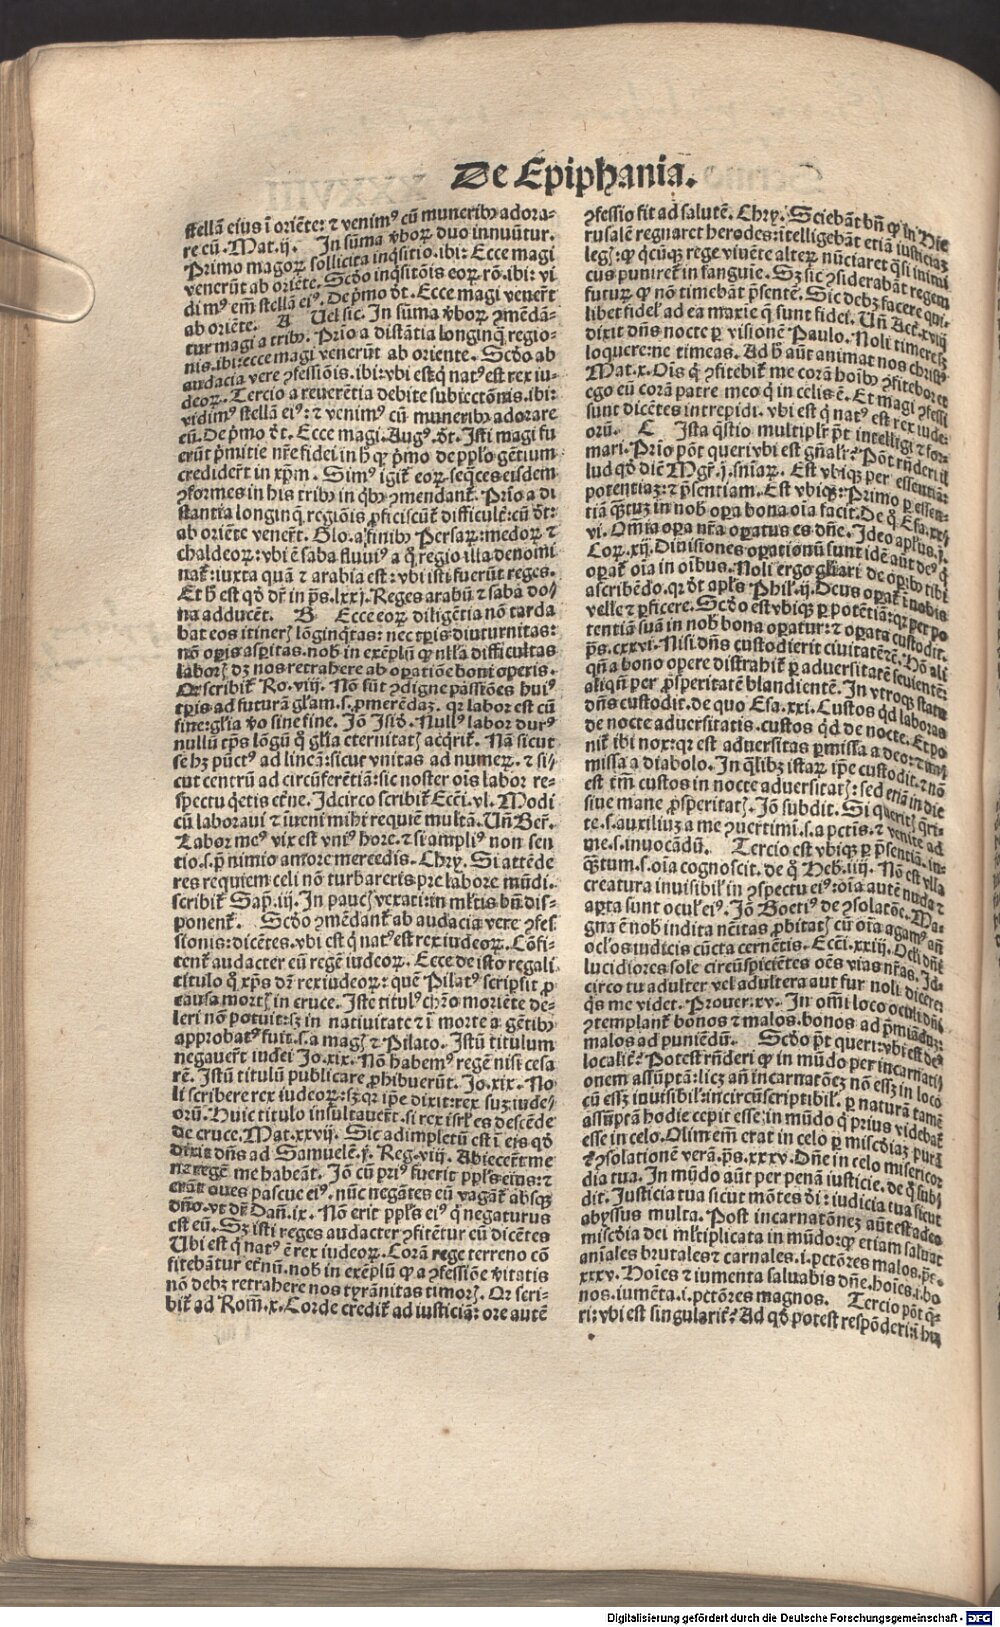 De Epiphania.
stellã eius ĩ oriẽte: ⁊ venimꝰ cũ muneribꝰ adora-
re cũ. Mat.ij. In sũma ꝟboꝝ duo innuũtur.
Primo magoꝝ sollicita inq̃sitio. ibi: Ecce magi
venerũt ab oriẽte. Scd̓o inq̃sitõis eoꝝ rõ. ibi: vi
dimꝰ em̃ stellã eiꝰ. De p̃mo d̓t. Ecce magi venert̃
ab oriẽte. A Uel sic. In sũma ꝟboꝝ ꝯmẽdã-
tur magi a tribꝰ. Prĩo a distãtia longinq̃ regio-
nis. ibi: ecce magi venerũt ab oriente. Scd̓o ab
audacia vere ꝯfessiõnis. ibi: vbi est q̓ natꝰ est rex iu-
deoꝝ. Tercio a reuerẽtia debite subiectõnis. ibi:
vidimꝰ stellã eiꝰ: ⁊ venimꝰ cũ muneribꝰ adorare
eũ. De p̃mo d̓t. Ecce magi. Augꝰ. d̓t. Isti magi fu
erũt p̃mitie nr̃e fidei in h̓ ꝙ p̃mo de pp̃lo gẽtium
credidert̃ in xp̃m. Simꝰ igit̃ eoꝝ seq̃ces eiusdem
ꝯformes in his tribꝰ in q̓bꝰ ꝯmendant̃. Prĩo a di
stantia longinq̃ regiõis ꝓficiscũt̃ difficulẽ: cũ d̓t:
ab oriẽte venert̃. Glo. a finibꝰ Persaꝝ: medoꝝ ⁊
chaldeoꝝ: vbi ẽ saba fluuiꝰ a q̓ regio illa denomi
nat̃: iuxta quã ⁊ arabia est: vbi isti fuerũt reges.
Et h̓ est qd̓ dr̃ in p̃s. lxxj. Reges arabũ ⁊ saba do-
na adducẽt. B Ecce eoꝝ diligẽtia nõ tarda
bat eos itineris lõginq̃tas: nec tp̃is diuturnitas:
nõ op̃is asp̃itas. nob̃ in exẽplũ ꝙ nll̃a difficultas
laboris dꝫ nos retrahere ab opatiõe boni operis.
Or scribit̃ Ro. viij. Nõ sũt ꝯdigne passiões huiꝰ
tp̃ris ad futurã gl̃am. s. ꝓmerẽdaꝫ. qr labor est cũ
fine: gl̃ia ꝟo sine fine. Iõ Isid̓. Nullꝰ labor durꝰ
nullũ tp̃s lõgũ q̓ gl̃ia eternitatis acq̃rit̃. Nã sicut
se hꝫ pũctꝰ ad lineã: sicut vnitas ad numeꝝ. ⁊ si-
cut centrũ ad circũferẽtiã: sic noster ois labor re-
spectu q̓etis et̃ne. Idcirco scribit̃ Ecci. vl. Modi
cũ laboraui ⁊ ĩueni mihi requiẽ multã. Uñ Ber̃.
Labor meꝰ vix est vniꝰ hore. ⁊ si ampliꝰ non sen
tio. s. p̃ nimio amore mercedis. Chry. Si attẽde
res requiem celi nõ turbareris pre labore mũdi.
scribit̃ Sap̃. iij. In paucis vexati: in ml̃tis bñ dis-
ponent̃. Scd̓o ꝯmẽdant̃ ab audacia vere ꝯfes
sionis: dicẽtes. vbi est q̓ natꝰ est rex iudeoꝝ. Cõfi-
tent̃ audacter eũ regẽ iudeoꝝ. Ecce de isto regali
titulo q̓ xp̃s dr̃ rex iudeoꝝ: quẽ Pilatꝰ scripsit ꝓ
causa mortis in cruce. Iste titulꝰ chr̃o moriẽte de-
leri nõ potuit: sꝫ in natiuitate ⁊ ĩ morte a gẽtibꝰ
approbatꝰ fuit. s. a magis ⁊ Pilato. Istũ titulum
negauert̃ iudei Jo. xix. Nõ habemꝰ regẽ nisi cesa
rẽ. Istũ titulũ publicare ꝓhibuerũt. Jo. xix. No
li scribere rex iudeoꝝ: sꝫ qr ip̃e dixit: rex suꝫ iude-
orũ. Huic titulo insultauert̃. si rex isrl̃ es descẽde
de cruce. Mat. xxvij. Sic adimpletũ est ĩ eis qd̓
dixit dñs ad Samuelẽ. j. Reg. viij. Abiecert̃ me
ne regẽ me habeãt. Iõ cũ priꝰ fuerit pp̃ls eiꝰ: ⁊
erãt oues pascue eiꝰ. nũc negãtes eũ vagãt̃ absqꝫ
dño. vt dr̃ Dañ. ix. Nõ erit pp̃ls eiꝰ q̓ negaturus
est eũ. Sꝫ isti reges audacter ꝯfitẽtur eũ dicẽtes
Ubi est q̓ natꝰ ẽ rex iudeoꝝ. Corã rege terreno cõ
fitebãtur et̃nũ. nob̃ in exẽplũ ꝙ a ꝯfessiõe ꝟitatis
nõ debꝫ retrahere nos tyrãnitas timoris. Or scri-
bit̃ ad Rom̃. x. Corde credit̃ ad iusticiã: ore autẽ
ꝯfessio fit ad salutẽ. Chry. Sciebãt bñ ꝙ in Hie
rusalẽ regnaret herodes: ĩtelligebãt etiã iusticiaꝫ
legis: ꝙ q̓cũqꝫ rege viuẽte alteꝝ nũciaret q̃si inimi
cus puniret̃ in sanguie. Sꝫ sic ꝯsiderabãt regem
futuꝝ ꝙ nõ timebãt p̃sentẽ. Sic debꝫ facere qui-
libet fidel̃ ad ea maxie q̃ sunt fidei. Uñ Act̃. xviij
dixit dñs nocte p̱ visionẽ Paulo. Noli timere: sꝫ
loquere: ne timeas. Ad h̓ aũt animat nos christꝰ
Mat. x. Ois q̓ ꝯfitebit̃ me corã hoĩbꝰ ꝯfitebor et
ego eũ corã patre meo q̓ in celis ẽ. Et magi ꝯfessi
sunt dicẽtes intrepidi. vbi est q̓ natꝰ est rex iude-
orũ. C Ista q̃stio multiplr̃ p̃t intelligi ⁊ for-
mari. Prĩo põt queri vbi est gñalr̃: Põt rñderi il
lud qd̓ diẽ Mgr̃. j. sniãꝝ. Est vbiqꝫ per essentiã:
potentiaꝫ: ⁊ p̃sentiam. Est vbiqꝫ: Primo p̱ essen-
tiã q̃ꝫtuꝫ in nob̃ opa bona oĩa facit. De q̓ Esa. xx
vi. Om̃ia opa nr̃a opatus es dñe. Ideo apl̃us. j.
Coꝝ. xij. Diuisiones opationũ sunt idẽ aũt deꝰ q̓
opat̃ oĩa in oĩbus. Noli ergo gl̃iari de opibꝰ tibi
ascribẽdo. qr d̓t apl̃s Phil̃. ij. Deus opat̃ ĩ nobis
velle ⁊ ꝑficere. Scd̓o est vbiqꝫ p̱ potẽtiã: qr per po
tentiã suã in nob̃ bona opatur: ⁊ opata custodit.
p̃s. cxxvi. Nisi dñs custodierit ciuitatẽ ⁊c̃. Hõ ali
qñ a bono opere distrahit̃ p̱ aduersitatẽ seuientẽ:
aliqñ per ꝓsperitatẽ blandientẽ. In vtroqꝫ statu
dñs custodit. de quo Esa. xxi. Custos q̓d laboras
de nocte aduersitatis. custos q̓d de nocte. Et po
nit̃ ibi nox: qr est aduersitas p̱missa a deo: ⁊ im̃
missa a diabolo. In q̃libꝫ istaꝝ ip̃e custodit. ⁊ nõ
est tm̃ custos in nocte aduersitatis: sed etiã in die
siue mane ꝓsperitatis. Iõ subdit. Si queritis q̃ri-
te. s. auxiliuꝫ a me ꝯuertimĩ. s. a pctis. ⁊ venite ad
me. s. inuocãdũ. Tercio est vbiqꝫ p̱ p̃sentiã. in-
q̃ꝫtum. s. oĩa cognoscit. de q̓ Heb̃. iiij. Nõ est vlla
creatura inuisibil̃ in ꝯspectu eiꝰ: oĩa autẽ nuda ⁊
ap̱ta sunt ocul̃ eiꝰ. Iõ Boetiꝰ de ꝯsolatõe. Ma-
gna ẽ nob̃ indita nẽitas ꝓbitatis cũ oĩa agamꝰ añ
ocl̃os iudicis cũcta cernẽtis. Ecci. xxiij. Ocl̃i dñi
lucidiores sole circũspiciẽtes oẽs vias nr̃as. Id-
circo tu adulter vel adultera aut fur noli dicere:
q̓s me videt. Prouer. xv. In om̃i loco oculi dñi
ꝯtemplant̃ bonos ⁊ malos. bonos ad p̃miãdũ:
malos ad puniẽdũ. Scd̓o p̃t queri: vbi est deꝰ
localiẽ: Potest rñderi ꝙ in mũdo per incarnatĩ
onem assũptã: licꝫ añ incarnatõeꝫ nõ esset in loco
cũ essꝫ inuisibil̃: incircũscriptibil̃. p̱ naturã tamẽ
assũptã hodie cepit esse in mũdo q̓ prius videbat̃
esse in celo. Olim em̃ erat in celo p̱ misc̃diaꝫ purã
⁊ ꝯsolationẽ verã. p̃s. xxxv. Dñe in celo misericor
dia tua. In mũdo aũt per penã iusticie. de q̓ subi
dit. Justicia tua sicut mõtes dĩ: iudicia tua sicut
abyssus multa. Post incarnatõneꝫ aũt est adeo
misc̃dia dei ml̃tiplicata in mũdo: ꝙ etiam saluat
aĩales brutales ⁊ carnales. i. pctõres malos. p̃s.
xxxv. Hoĩes ⁊ iumenta saluabis dñe. hoĩes. i. bo
nos. iumẽta. i. pctõres magnos. Tercio põt q̃-
ri: vbi est singularit̃: Ad qd̓ potest respõderi: ĩ hu
Digitalisierung gefördert durch die Deutsche Forschungsgemeinschaft - DFG